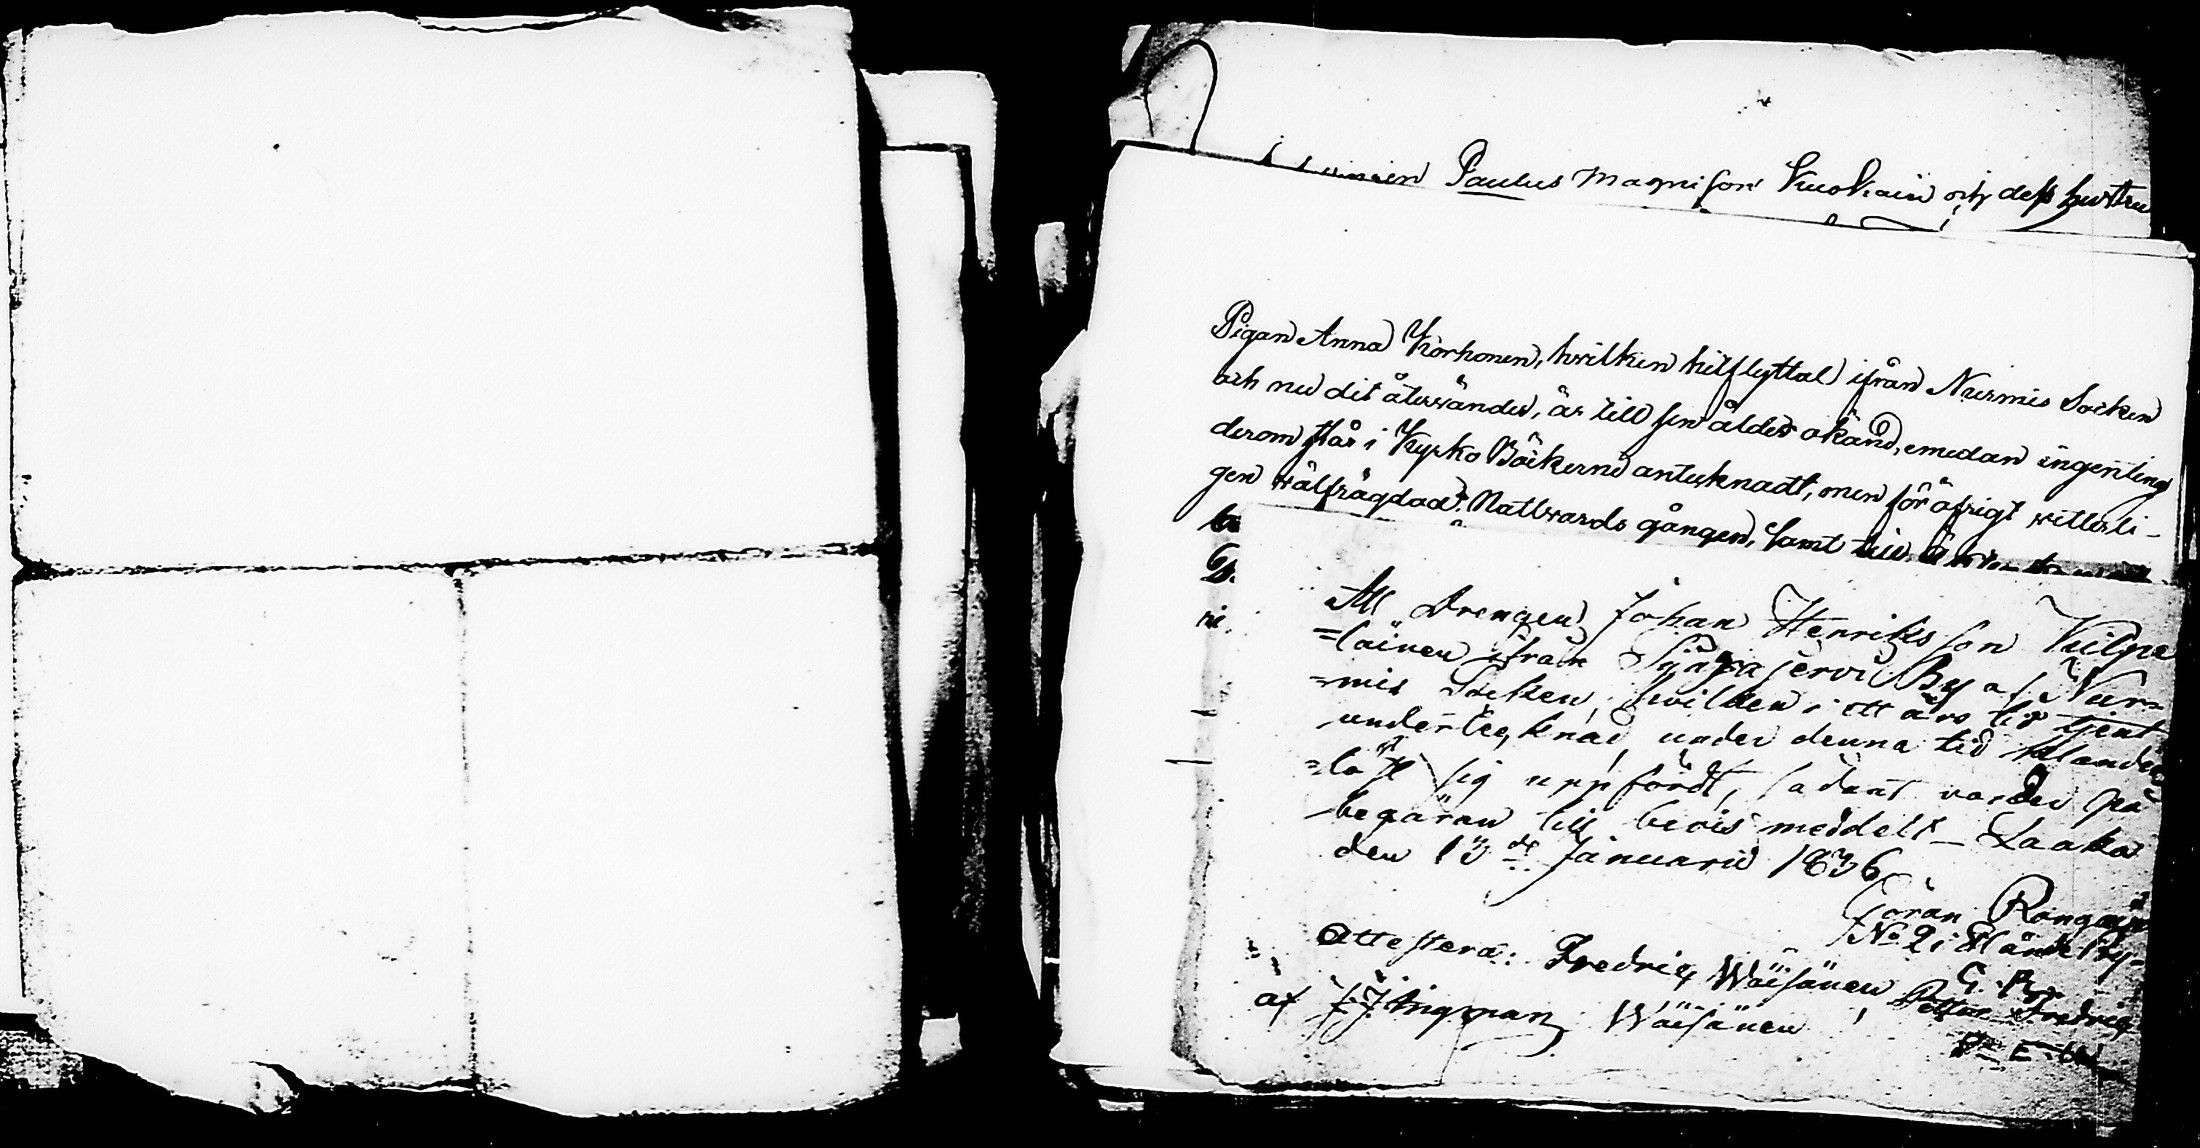 Paulus Magnisson Kuokain och dess hustru
Pigan Anna Korhonen, hvilken hitflyttat ifrån Nurmis Socken
och nu dit återvänder, är till sin ålder okänd, emedan ingenting
derom står i Kyrko Böckerne antecknadt, men för öfrigt vitterli-
gen välfrägdad, Nattvards gången, samt till
b
G.
ri
Att Drengen Johan Henriksson Kilpe
=läinen ifrån Syväjervi By af Nur=
=mis Socken, hvilken i ett års tid tjent
undertecknad, under denna tid klander
=löst sig uppfördt, sådant varder på
begäran till bevis meddelt - Laaka
den 13de Januarii 1836
Göran Rongain
No 2 i By-
G. R.
Attestera: Fredric Wäisänen, Petter Fredric
af J. J. Ingman Wäisänen